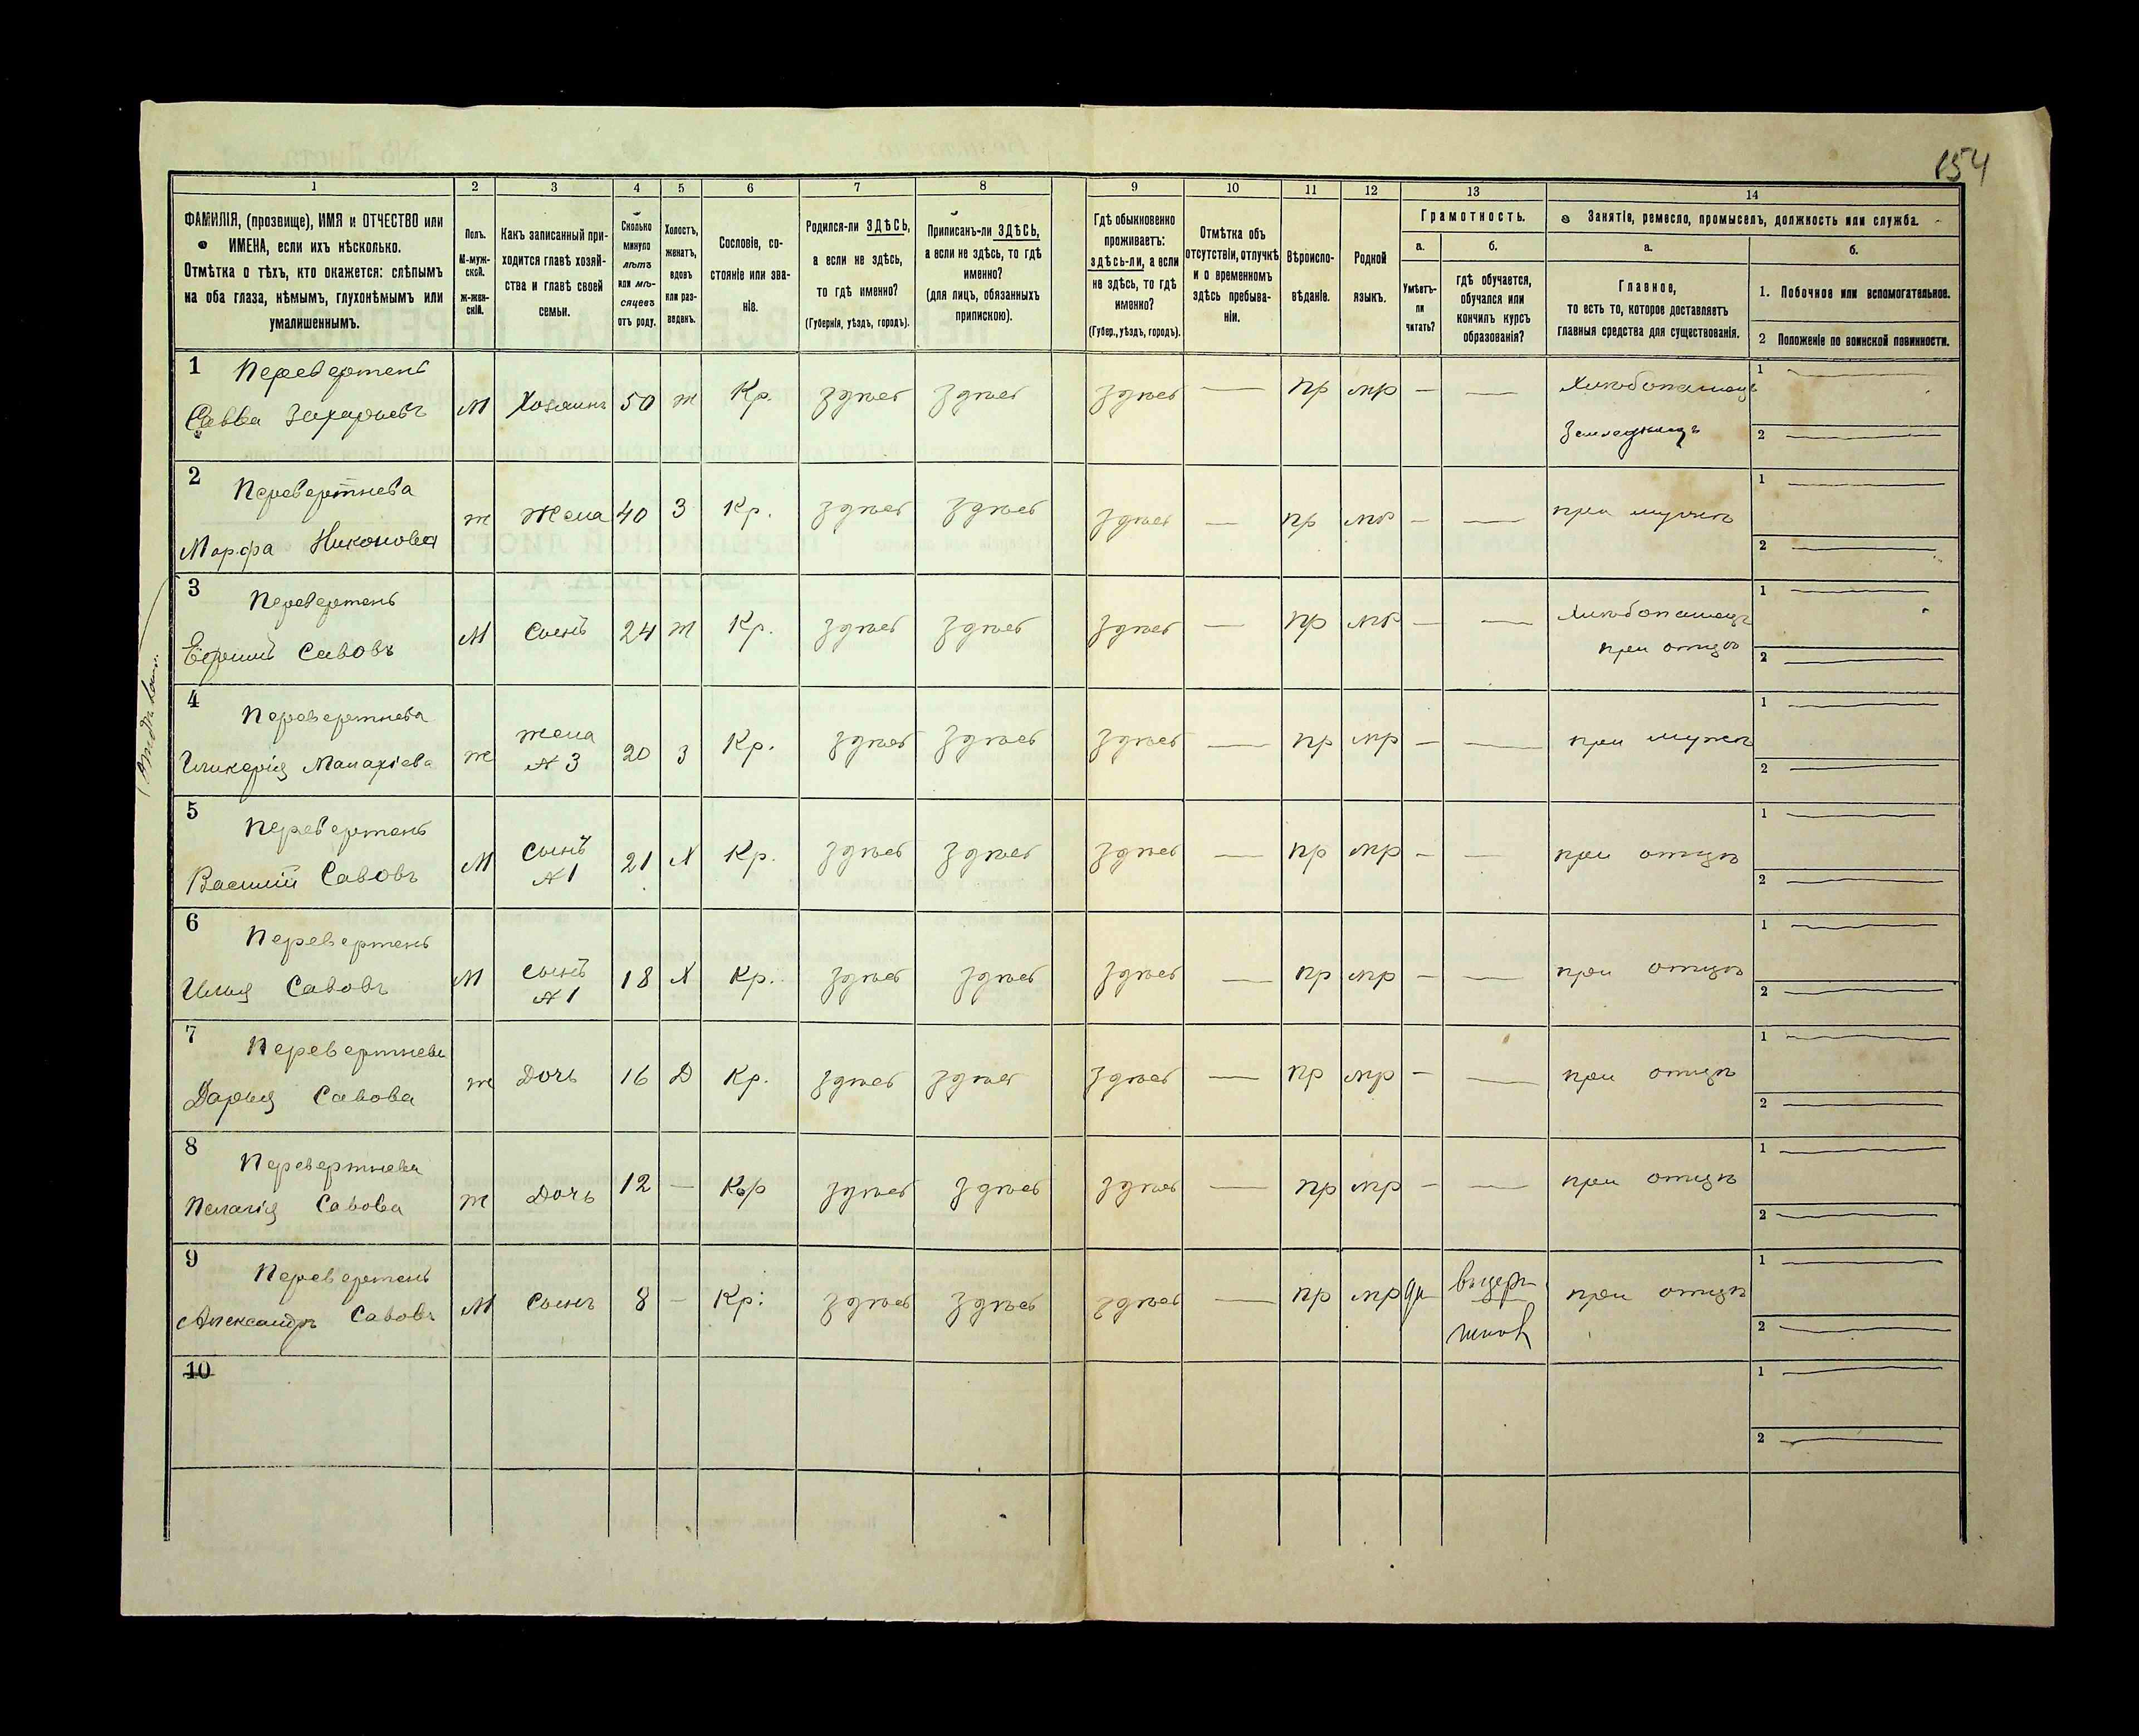 154
1 2 3 4 5 6 7 8 9 10 11 12 13 14
ФАМИЛІЯ, (прозвище), ИМЯ и ОТЧЕСТВО или
ИМЕНА, если ихъ нѣсколько.
Отмѣтка о тѣхъ, кто окажется: слѣпымъ
на оба глаза, нѣмымъ, глухонѣмымъ или
умалишеннымъ.
Полъ.
М-муж-
ской.
ж-жен-
скій.
Какъ записанный при-
ходится главѣ хозяй-
ства и главѣ своей
семьи.
Сколько
минуло
лѣтъ
или мѣ-
сяцевъ
отъ роду.
Холостъ,
женатъ,
вдовъ
или раз-
веденъ.
Сословіе, со-
стояніе или зва-
ніе.
Родился-ли ЗДѢСЬ,
а если не здѣсь,
то гдѣ именно?
(Губернія, уѣздъ, городъ).
Приписанъ-ли ЗДѢСЬ,
а если не здѣсь, то гдѣ
именно?
(для лицъ, обязанныхъ
припискою).
Гдѣ обыкновенно
проживаетъ:
здѣсь-ли, а если
не здѣсь, то гдѣ
именно?
(Губер., уѣздъ, городъ).
Отмѣтка объ
отсутствіи, отлучкѣ
и о временномъ
здѣсь пребыва-
ніи.
Вѣроиспо-
вѣданіе.
Родной
языкъ.
Грамотность.
а.
Умѣетъ-
ли
читать?
б.
гдѣ обучается,
обучался или
кончилъ курсъ
образованія?
Занятіе, ремесло, промыселъ, должность или служба.
а.
Главное,
то есть то, которое доставляетъ
главныя средства для существованія.
б.
1. Побочное или вспомогательное.
2 Положеніе по воинской повинности.
1 Перевертень
Савва Захарьевъ М Хозяинъ 50 ж Кр. здѣсь здѣсь здѣсь — пр мр — — Хлѣбопашецъ 1 —
Земледѣлецъ 2 —
2 Перевертнева
Марфа Никонова ж Жена 40 З Кр. здѣсь здѣсь здѣсь — пр мр — — при мужѣ 1 —
2 —
3 Перевертень
Ефримъ Савовъ М Сынъ 24 ж Кр. здѣсь здѣсь здѣсь — пр мр — — Хлѣбопашецъ 1 —
при отцѣ 2 —
4 Перевертнева
Гликерія Малахіева ж жена
№ 3 20 з Кр. здѣсь здѣсь здѣсь — пр мр — — при мужѣ 1 —
2 —
5 Перевертень
Василій Савовъ М Сынъ
№ 1 21 Х Кр. здѣсь здѣсь здѣсь — пр мр — — при отцѣ 1 —
2 —
6 Перевертень
Илья Савовъ М сынъ
№ 1 18 Х Кр. здѣсь здѣсь здѣсь — пр мр — — при отцѣ 1 —
2 —
7 Перевертнева
Дарья Савова ж Дочь 16 Д Кр. здѣсь здѣсь здѣсь — пр мр — — при отцѣ 1 —
2 —
8 Перевертнева
Пелагія Савова ж Дочь 12 — Кр здѣсь здѣсь здѣсь — пр мр — — при отцѣ 1 —
2 —
9 Перевертень
Александръ Савовъ М Сынъ 8 — Кр: здѣсь здѣсь здѣсь — пр мр да вцерк при отцѣ 1 —
школѣ 2 —
10 1 —
2 —